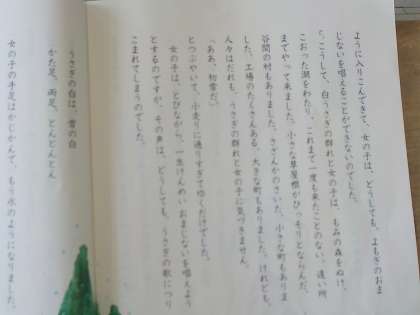 ように入りこんできて、女の子は、どうしても、よもぎのおま
じないを唱えることができないのでした。
こうして、白うさぎの群れと女の子は、もみの森をぬけ、
こおった湖をわたり、これまで一度も来たことのない、遠い所
までやって来ました。小さな草屋根がひっそりとならんだ、
谷間の村もありました。さざんかのさいた、小さな町もありま
した。工場のたくさんある、大きな町もありました。けれども、
人々はだれも、うさぎの群れと女の子に気づきません。
「ああ、初雪だ。」
とつぶやいて、小走りに通りすぎて行くだけでした。
女の子は、とびながら、一生けんめいおまじないを唱えよう
とするのですが、その声は、どうしても、うさぎの歌につり
こまれてしまうのでした。
うさぎの白は、雪の白
かた足、両足、とんとんとん
女の子の手足はかじかんで、もう氷のようになりました。